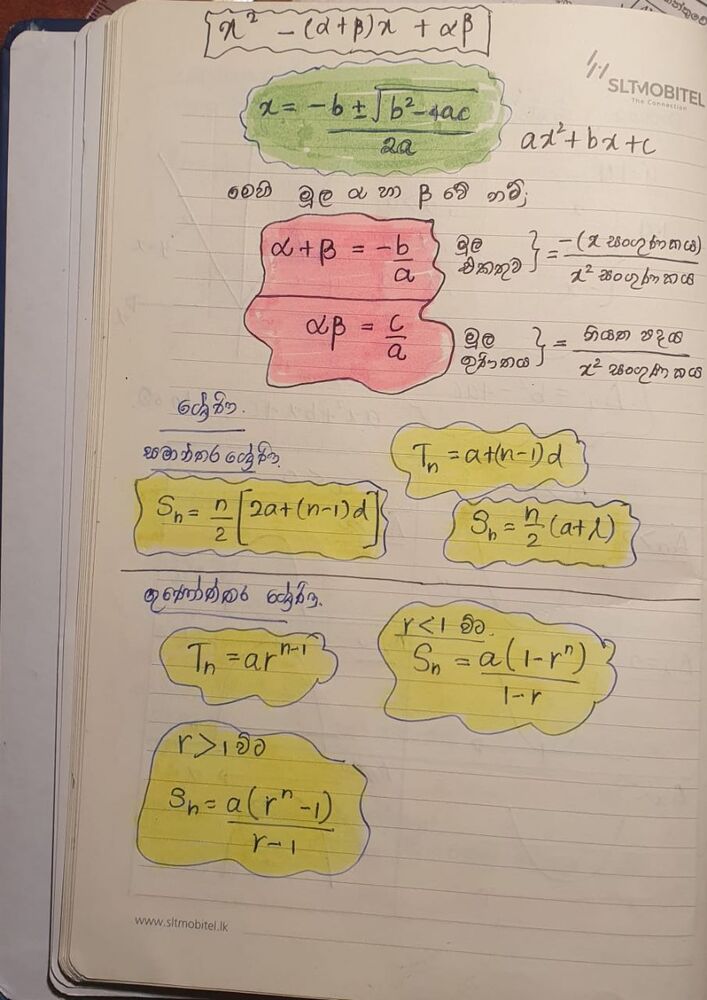 x² - (α+β)x + αβ
SLTMOBITEL
The Connection
x = -b ± √(b²-4ac) / 2a
ax²+bx+c
මෙහි මූල α හා β වේ නම්;
α+β = -b/a
මූල එකතුව } = -(x සංගුණකය) / x² සංගුණකය
αβ = c/a
මූල ගුණිතය } = නියත පදය / x² සංගුණකය
ශ්‍රේණි.
සමාන්තර ශ්‍රේණි.
Tn = a+(n-1)d
Sn = n/2 [2a+(n-1)d]
Sn = n/2 (a+l)
ගුණෝත්තර ශ්‍රේණි.
Tn = ar^(n-1)
r<1 විට
Sn = a(1-r^n) / 1-r
r>1 විට
Sn = a(r^n -1) / r-1
www.sltmobitel.lk